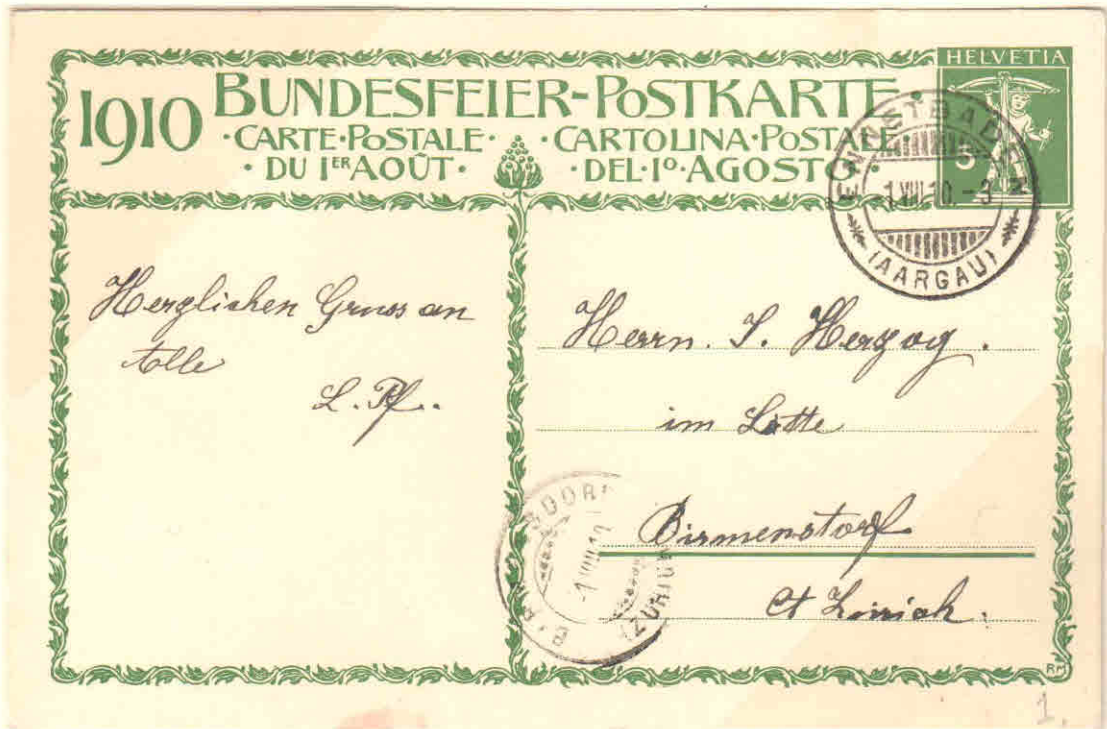 HELVETIA
1910 BUNDESFEIER-POSTKARTE
·CARTE·POSTALE· ·CARTOLINA·POSTALE
DU 1ER AOÛT· ·DEL·1º·AGOSTO·
5
ENNETBADEN
-1.VIII.10.-3
(AARGAU)
Herzlichen Gruss an
Alle
L. Pf.
Herrn. J. Herzog.
im
Birmenstorf
Ct Zürich.
-1.VIII.10
(ZÜRICH)
RM
1.